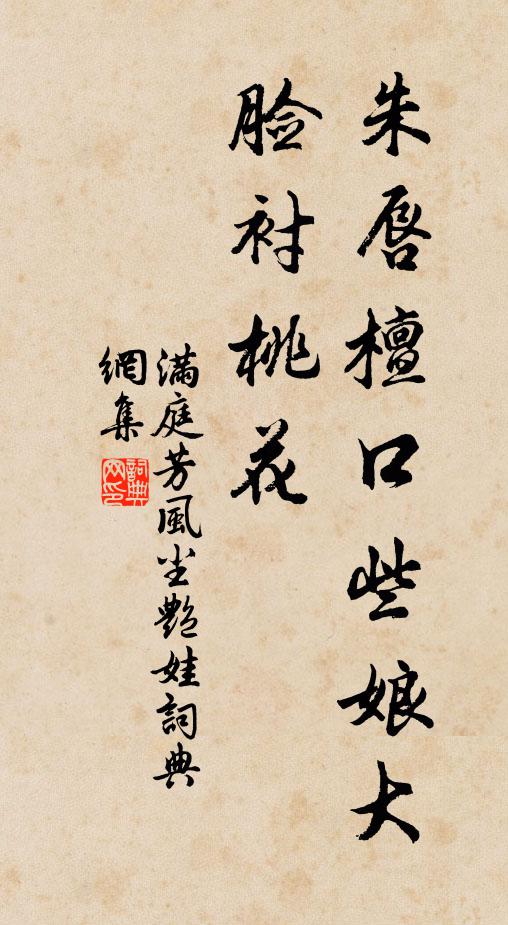 朱唇檀口些娘大
脸衬桃花
满庭芳風尘艷娃詞典
網集
詞典网印